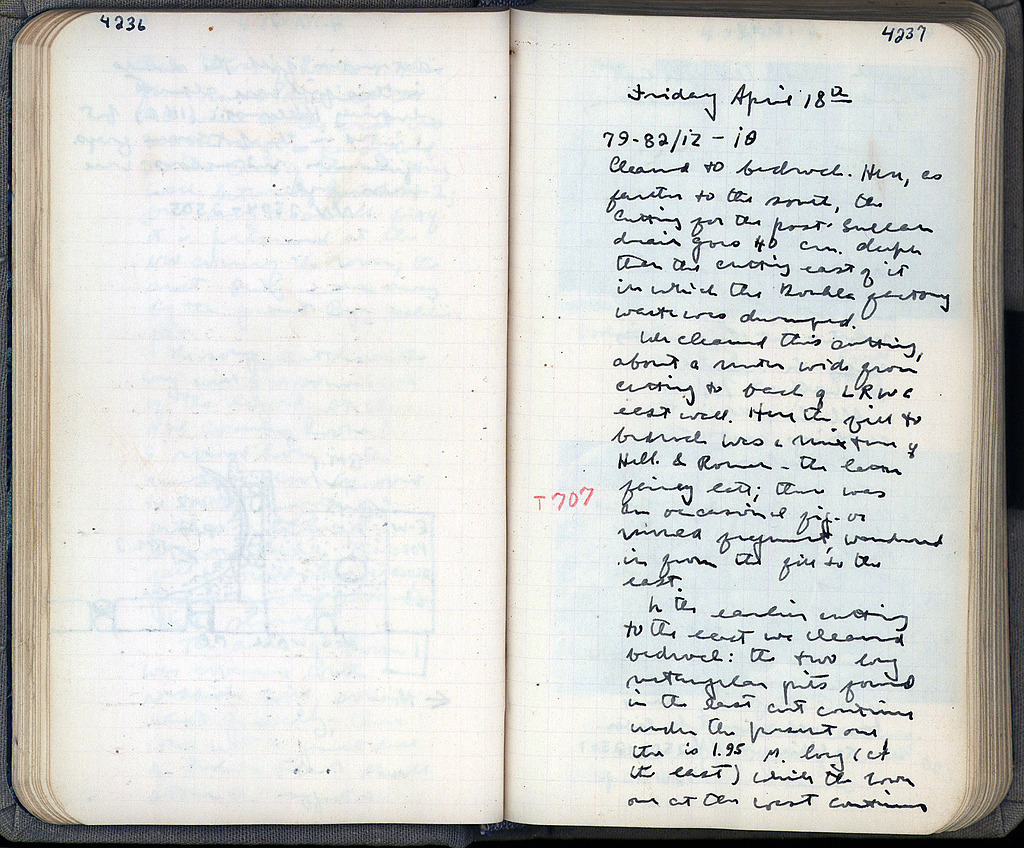 4236
4237
Friday April 18th
79-82/ΙΖ - ΙΘ
Cleared to bedrock. Here, as
farther to the south, the
cutting for the post-Sullan
drain goes 40 cm. deeper
than the cutting east of it
in which the factory
waste was dumped.
We cleared this cutting,
about a meter wide from
cutting to back of LRWC
east wall. Here the fill to
bedrock was a mixture of
Hell. & Roman - the loose
earth; there was
T 707
an occasional fig. or
fragment, wandered
in from the fill to the
east.
In the earlier cutting
to the east we cleared
bedrock: the two long
rectangular pits found
in the last cut continue
under the present one,
the is 1.95 M. long (at
the east) while the
one at the west continues